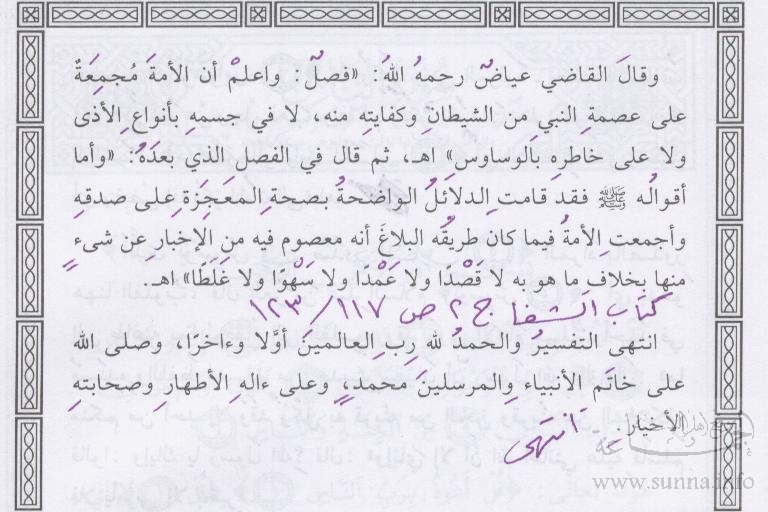 وقالَ القاضي عياضٌ رحمهُ اللهُ: «فصلٌ: واعلمْ أن الأمةَ مُجمِعَةٌ
على عصمةِ النبيِ من الشيطانِ وكفايتِهِ منه، لا في جسمهِ بأنواعِ الأذى
ولا على خاطرِهِ بالوساوسِ» اهـ، ثم قال في الفصلِ الذي بعدَهُ: «وأما
أقوالُه ﷺ فقد قامتِ الدلائلُ الواضحةُ بصحةِ المعجِزةِ على صدقهِ
وأجمعت الأمةُ فيما كان طريقُه البلاغَ أنه معصوم فيه من الإخبارِ عن شىءٍ
منها بخلافِ ما هو به لا قَصْدًا ولا عَمْدًا ولا سَهْوًا ولا غَلَطًا» اهـ.
كتاب الشفا ج ٢ ص ١١٧ / ١٢٣
انتهى التفسيرُ والحمدُ للهِ ربِ العالمينَ أوَّلا وءاخرًا، وصلى الله
على خاتَمِ الأنبياءِ والمرسلينَ محمدٍ، وعلى ءالِهِ الأطهارِ وصحابتهِ
الأخيارِ. انتهى
www.sunna.info